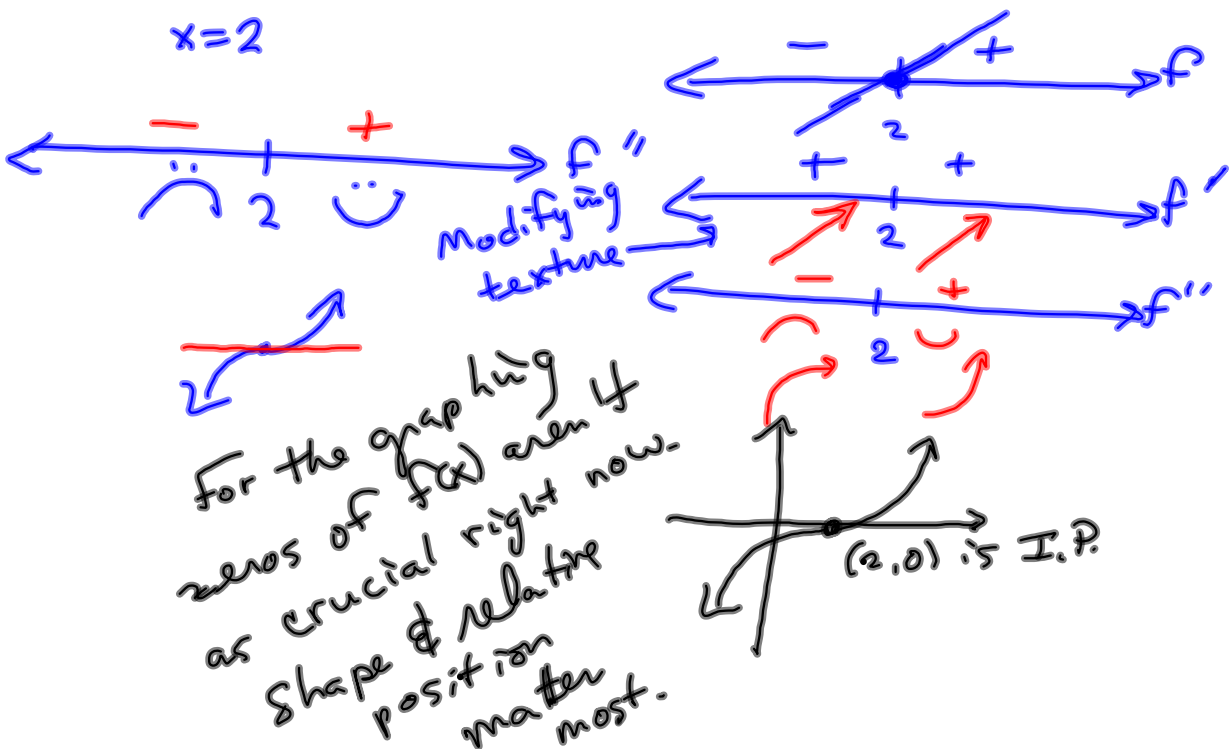 x=2
− +
2
f"
− +
2
f
+ +
2
f'
Modifying
texture
− +
2
f"
For the graphing
zeros of f(x) aren't
as crucial right now.
Shape & relative
position
matter
most.
(2,0) is I.P.